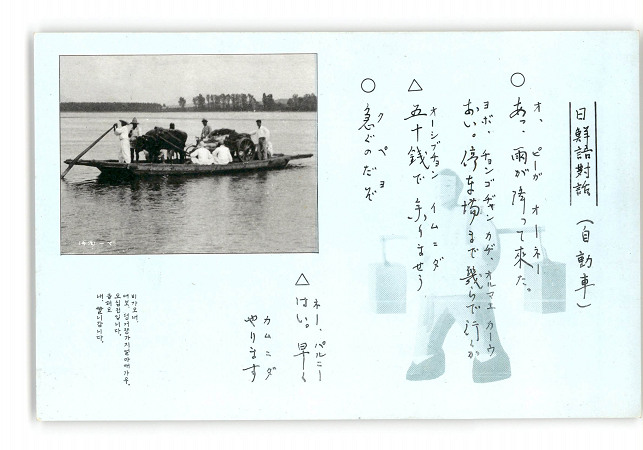 日鮮語對話（自動車）
オ、ピーガ オーネー
○あっ、雨が降って來た。
ヨボ、チョンゴヂャンカヂ、オルマエ カーウ
おい。停車場まで幾らで行くか
オーシプチョン イムニダ
△五十銭で參りませう
クペヨ
○急ぐのだぞ
ネー、パルニー
△はい。早く
カムニダ
やります
비가오네.
여보, 정거장가지얼마에가우.
오십전입니다.
급해요
네 빨니감니다.